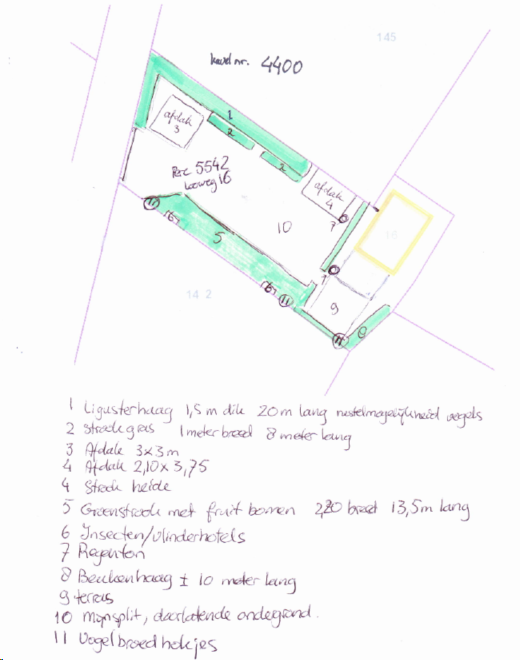 145
kavel nr. 4400
afdak
3
1
2
2
Perc 5542
Looweg 16
afdak
4
7
16
10
11
6
5
6
11
7
9
11
8
14 2
1 Ligusterhaag 1,5 m dik 20 m lang nestelmogelijkheid vogels
2 strook gras 1 meter breed 8 meter lang
3 Afdak 3x3 m
4 Afdak 2,10 x 3,75
4 Strook heide
5 Groenstrook met fruit bomen 2,20 breed 13,5m lang
6 Insecten/vlinderhotels
7 Regenton
8 Beukenhaag ± 10 meter lang
9 terras
10 Mijnsplit, doorlatende ondergrond.
11 Vogelbroedhokjes